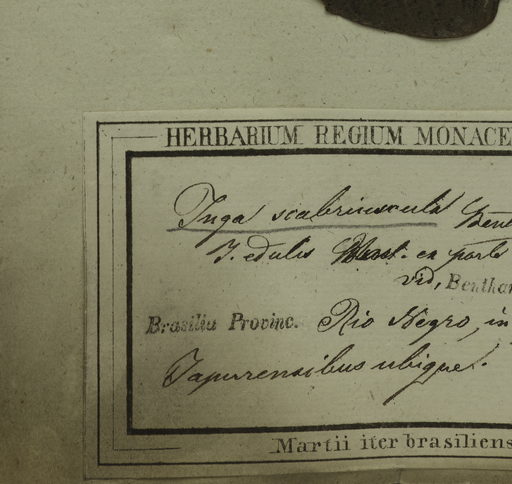 HERBARIUM REGIUM MONACE
Inga scabriuscula Bent
I. edulis Mart. ex parte
vid, Benthan
Brasilia Provinc. Rio Negro, in
Japurensibus ubique.
Martii iter brasiliens